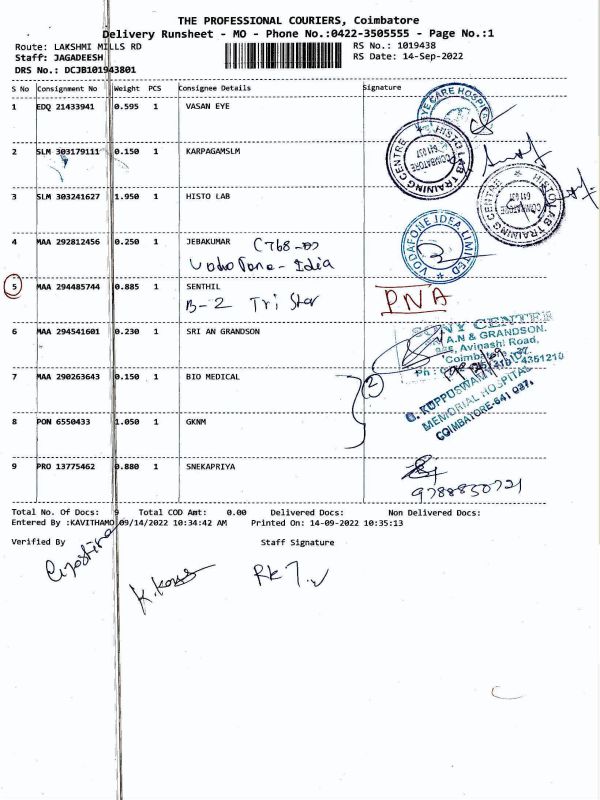 THE PROFESSIONAL COURIERS, Coimbatore
Delivery Runsheet - MO - Phone No.:0422-3505555 - Page No.:1
Route: LAKSHMI MILLS RD
RS No.: 1019438
Staff: JAGADEESH
RS Date: 14-Sep-2022
DRS No.: DCJB101943801
S No Consignment No Weight PCS Consignee Details Signature
1 EDQ 21433941 0.595 1 VASAN EYE
EYE CARE HOSPITAL
2 SLM 303179111 0.150 1 KARPAGAMSLM
HISTO LAB TRAINING CENTRE
COIMBATORE
641 037
3 SLM 303241627 1.950 1 HISTO LAB
HISTO LAB TRAINING CENTRE
COIMBATORE
641 037
4 MAA 292812456 0.250 1 JEBAKUMAR
Vodofone-Idia
VODAFONE IDEA LIMITED
5 MAA 294485744 0.885 1 SENTHIL
B-2 Tri Star
PNA
6 MAA 294541601 0.230 1 SRI AN GRANDSON
SONY CENTER
A.N & GRANDSON.
Avinashi Road,
4351210
7 MAA 290263643 0.150 1 BIO MEDICAL
2
G. KUPPUSWAMY NAIDU
MEMORIAL HOSPITAL
COIMBATORE-641 037.
8 PON 6550433 1.050 1 GKNM
9 PRO 13775462 0.880 1 SNEKAPRIYA
9788850721
Total No. Of Docs: 9 Total COD Amt: 0.00 Delivered Docs: Non Delivered Docs:
Entered By :KAVITHAMO 09/14/2022 10:34:42 AM Printed On: 14-09-2022 10:35:13
Verified By Staff Signature